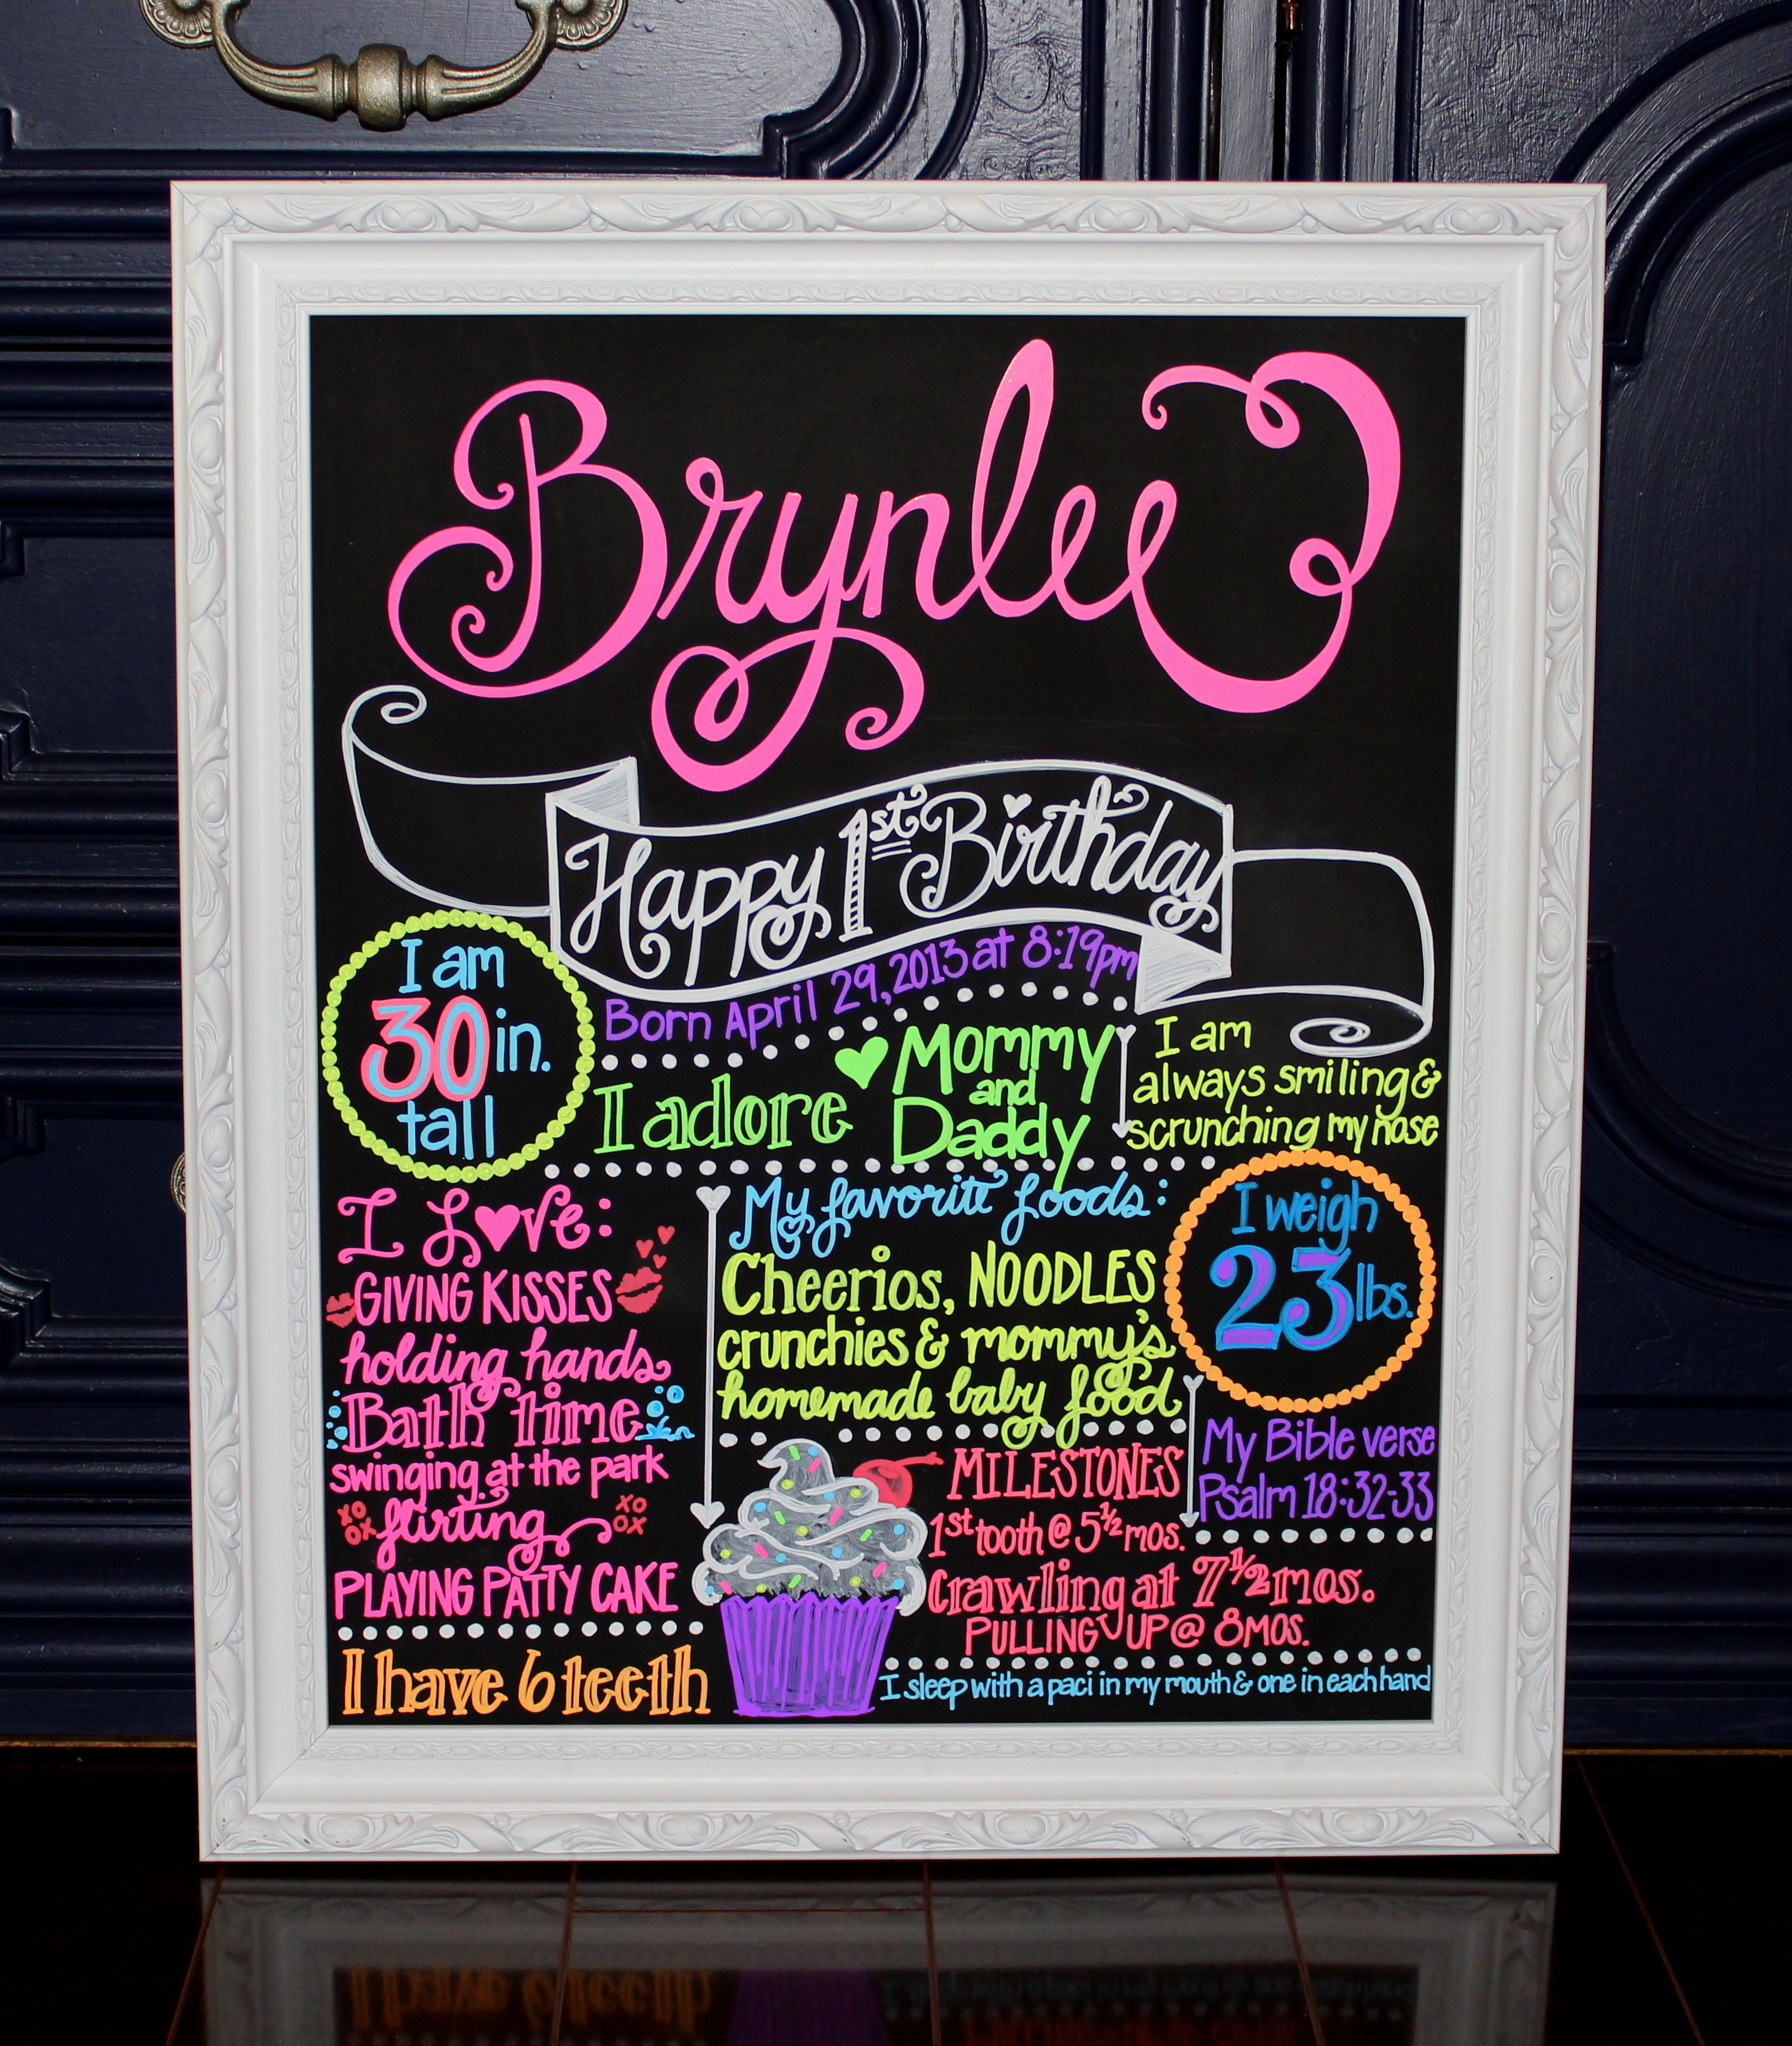 Brynlee
Happy 1st Birthday
Born April 29, 2013 at 8:19pm
I am
30 in.
tall
I adore
Mommy
and
Daddy
I am
always smiling &
scrunching my nose
I Love:
GIVING KISSES
holding hands
Bath time
swinging at the park
XO
OX
flirting
XO
OX
PLAYING PATTY CAKE
I have 6 teeth
My favorite foods:
Cheerios, NOODLES
crunchies & mommy's
homemade baby food
I weigh
23 lbs.
My Bible verse
Psalm 18:32-33
MILESTONES
1st tooth @ 5 1/2 mos.
Crawling at 7 1/2 mos.
PULLING UP @ 8 MOS.
I sleep with a paci in my mouth & one in each hand